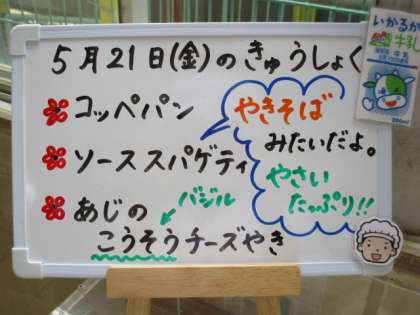 5月21日(金)のきゅうしょく
コッペパン
ソーススパゲティ
あじの
バジル
こうそうチーズやき
やきそば
みたいだよ。
やさい
たっぷり!!
いかるが
牛乳
200ml